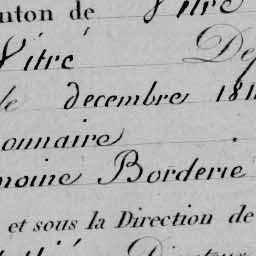 nton de Vitré
Vitré Dep
le decembre 181
onnaire
moine Borderie
et sous la Direction de